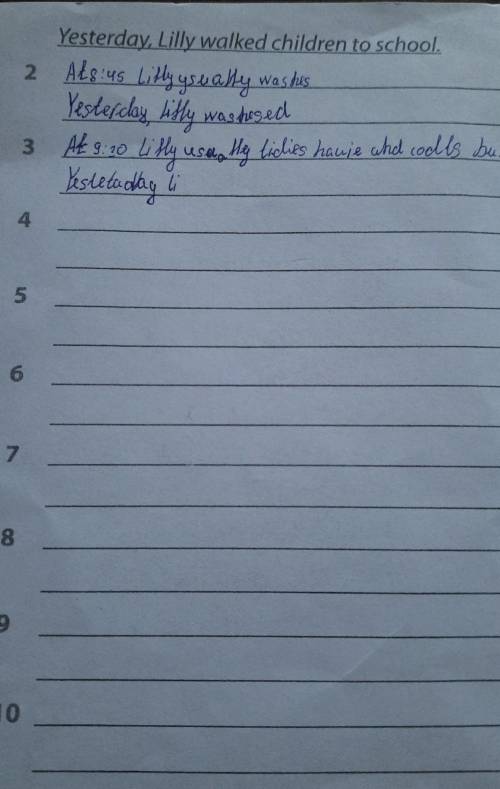 Yesterday, Lilly walked children to school.
2 At 8:45 Lilly usually washes
Yesterday, Lilly washesed
3 At 9:30 Lilly usually tidies house and cooks
Yesterday li
4
5
6
7
8
9
10